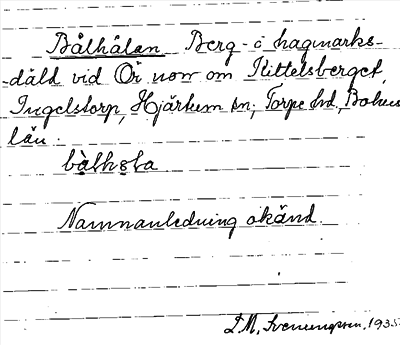 Bålhålan Berg- o hagmarks-
-däld vid Ör norr om Kittelsberget,
Ingelstorp, Hjärtum sn; Torpe hd, Bohus
län.
bålhɷla
Namnanledning okänd.
L M, Svenungson, 1935